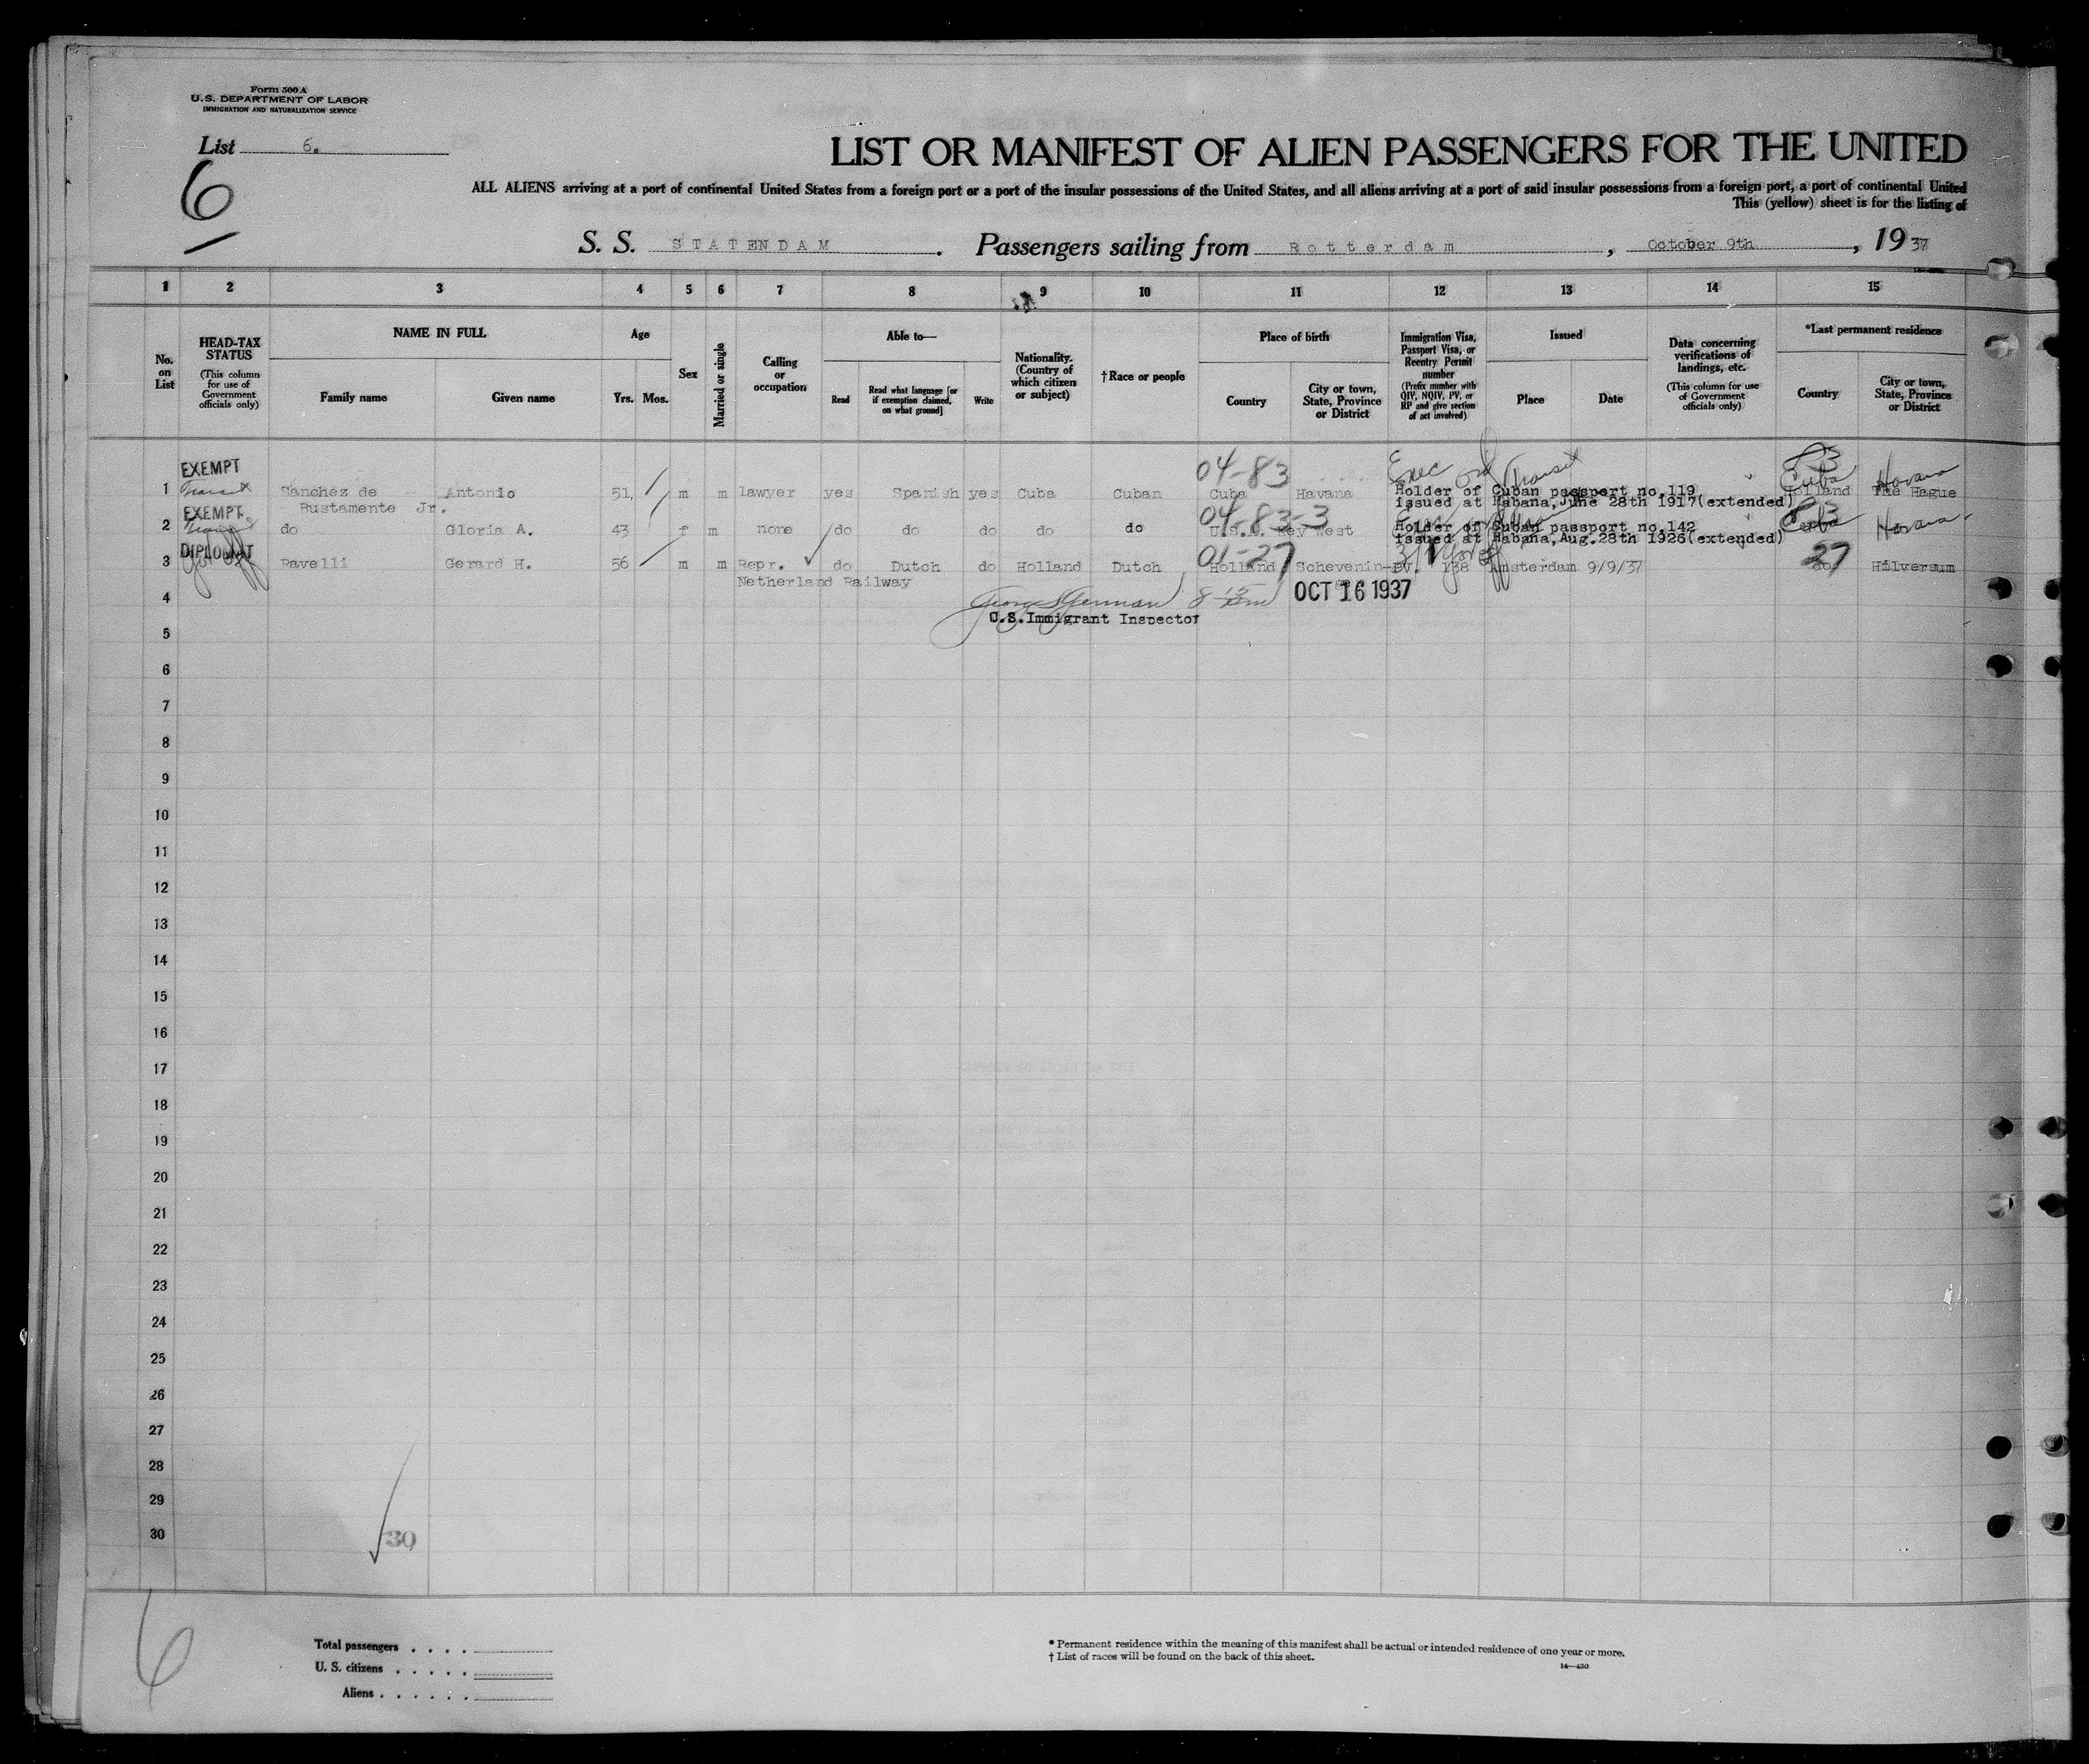 Form 500 A
U.S. DEPARTMENT OF LABOR
IMMIGRATION AND NATURALIZATION SERVICE
List 6.
6
LIST OR MANIFEST OF ALIEN PASSENGERS FOR THE UNITED
ALL ALIENS arriving at a port of continental United States from a foreign port or a port of the insular possessions of the United States, and all aliens arriving at a port of said insular possessions from a foreign port, a port of continental United
This (yellow) sheet is for the listing of
S. S. STATENDAM. Passengers sailing from Rotterdam, October 9th, 1937
1 2 3 4 5 6 7 8 9 10 11 12 13 14 15
No. on List
HEAD-TAX STATUS (This column for use of Government officials only)
NAME IN FULL
Family name Given name
Age
Yrs. Mos.
Sex
Married or single
Calling or occupation
Able to—
Read
Read what language [or if exemption claimed, on what ground]
Write
Nationality. (Country of which citizen or subject)
†Race or people
Place of birth
Country
City or town, State, Province or District
Immigration Visa, Passport Visa, or Reentry Permit number (Prefix number with QIV, NQIV, PV, or RP and give section of act involved)
Issued
Place Date
Data concerning verifications of landings, etc. (This column for use of Government officials only)
*Last permanent residence
Country
City or town, State, Province or District
EXEMPT 04-83 Exec Transit
1 Transit Sanchez de Antonio 51 m m lawyer yes Spanish yes Cuba Cuban Cuba Havana Holder of Cuban passport no.119 Holland The Hague Cuba Havana
Bustamente Jr. issued at Habana, June 28th 1917(extended)
EXEMPT 04-83-3
2 do Gloria A. 43 f m none do do do do do U.S.A. Key West Holder of Cuban passport no.142 Cuba Havana
issued at Habana, Aug. 28th 1926(extended)
DIPLOMAT 01-27 27
3 Ravelli Gerard H. 56 m m Repr. do Dutch do Holland Dutch Holland Schevenin- PV. 138 Amsterdam 9/9/37 do Hilversum
Netherland Railway
4 OCT 16 1937
U.S.Immigrant Inspector
5
6
7
8
9
10
11
12
13
14
15
16
17
18
19
20
21
22
23
24
25
26
27
28
29
30
30
6
Total passengers . . . .
U. S. citizens . . . . .
Aliens . . . . . .
* Permanent residence within the meaning of this manifest shall be actual or intended residence of one year or more.
† List of races will be found on the back of this sheet.
14—430